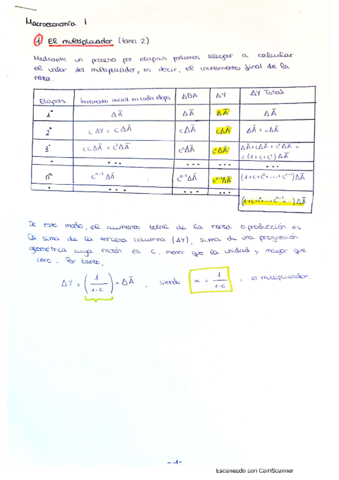 Macroeconomía I
1 El multiplicador (tema 2)
Mediante un proceso por etapas podemos llegar a calcular
el valor del multiplicador, es decir, el incremento final de la
renta.
Etapas | Incremento inicial en cada etapa | ΔDA | ΔY | ΔY Total
1ª | ΔĀ | ΔĀ | ΔĀ | ΔĀ
2ª | cΔY = cΔĀ | cΔĀ | cΔĀ | ΔĀ + cΔĀ
3ª | c·cΔĀ = c²ΔĀ | c²ΔĀ | c²ΔĀ | ΔĀ + cΔĀ + c²ΔĀ =
= (1 + c + c²)ΔĀ
... | ... | ... | ...
nª | cⁿ⁻¹ΔĀ | cⁿ⁻¹ΔĀ | cⁿ⁻¹ΔĀ | (1 + c + c² + ... + cⁿ⁻¹)ΔĀ
... | ... | ... | ...
(1 + c + c² + ... + cⁿ⁻¹ ...)ΔĀ
De este modo, el aumento total de la renta o producción es
la suma de la tercera columna (ΔY), suma de una progresión
geométrica cuya razón es c, menor que la unidad y mayor que
cero. Por tanto,
ΔY = (1 / 1-c) · ΔĀ , siendo α = 1 / 1-c , el multiplicador.
-1-
Escaneado con CamScanner